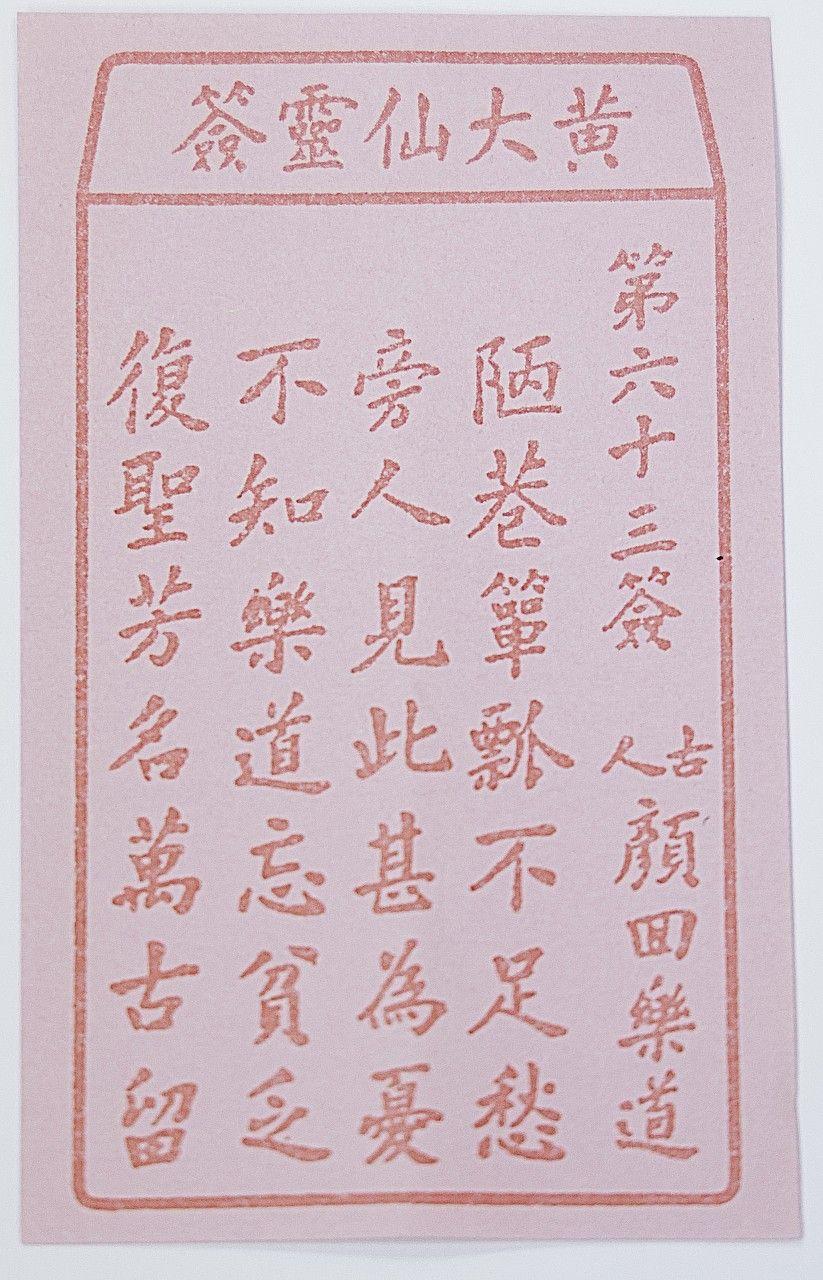 黄大仙靈簽
第六十三簽 古人 顏回樂道
陋巷簞瓢不足愁
旁人見此甚為憂
不知樂道忘貧乏
復聖芳名萬古留